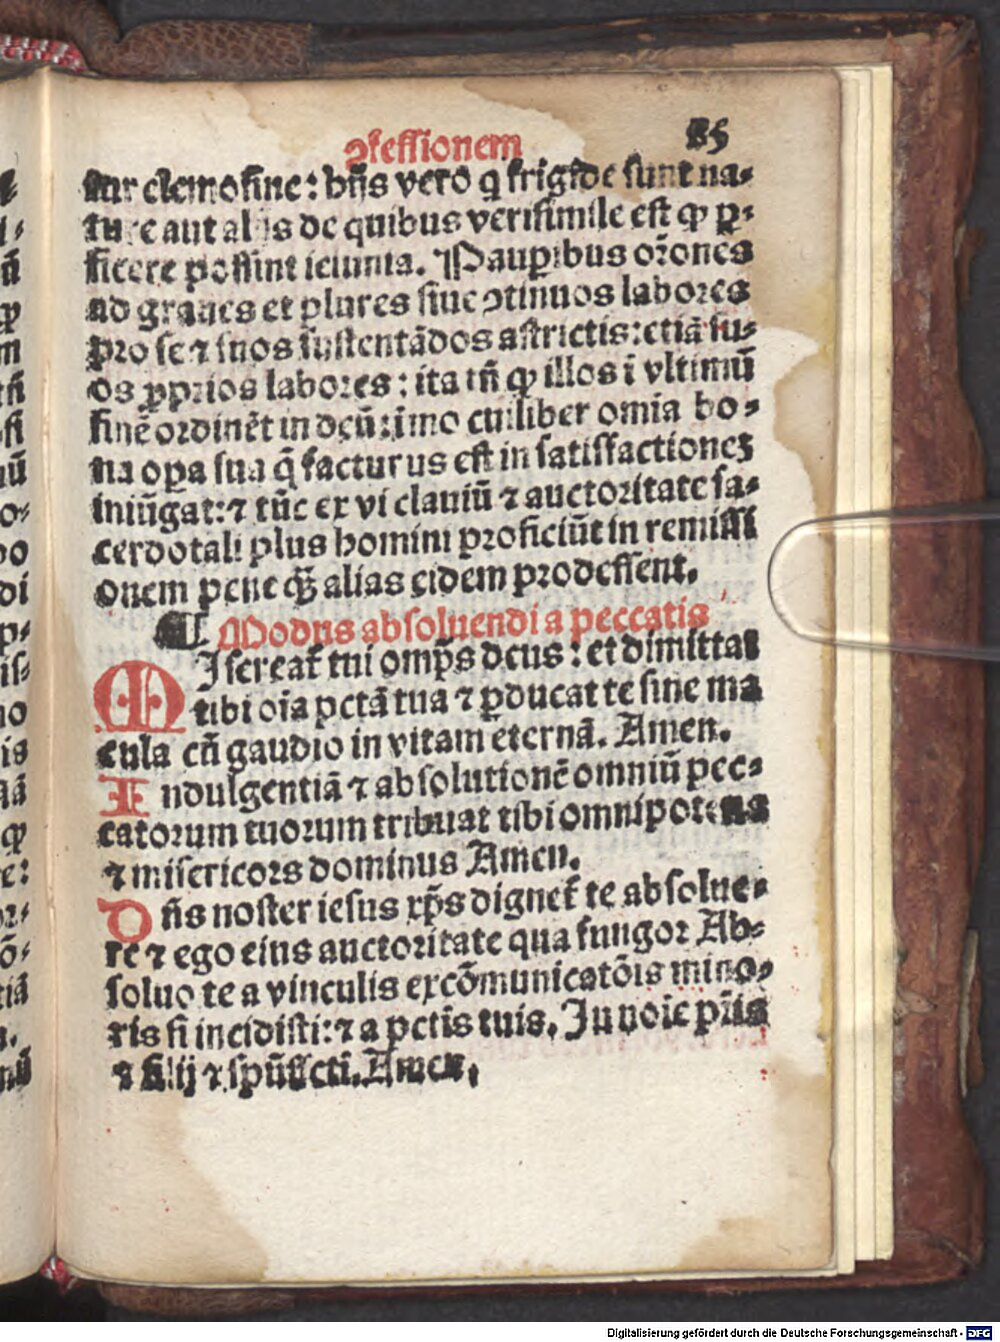 ↄfessionem 85
tur elemosine: hijs vero q̄ frigide sunt na⸗
ture aut alijs de quibus verisimile est ꝙ ꝑ⸗
ficere possint ieiunia. Pauꝑibus or̄ones
ad graues et plures siue ↄtinuos labores
pro se ⁊ suos sustentādos astrictis: etiā su⸗
os ꝓprios labores: ita tñ ꝙ illos ī vltimū
finē ordinēt in deū: imo cuiliber omia bo⸗
na oꝑa sua q̄ facturus est in satisfactionez
iniūgat: ⁊ tūc ex vi clauiū ⁊ auctoritate sa⸗
cerdotali plus homini proficiūt in remissi
onem pene qꝫ̄ alias eidem prodessent.
¶ Modus absoluendi a peccatis
MIsereat̄ tui omp̄s deus: et dimittat
tibi oīa pctā tua ⁊ ꝑducat te sine ma
cula cū gaudio in vitam eternā. Amen.
Indulgentiā ⁊ absolutionē omniū pec⸗
catorum tuorum tribuat tibi omnipotens
⁊ misericors dominus Amen.
Dn̄s noster iesus xp̄s dignet̄ te absolue⸗
re ⁊ ego eius auctoritate qua fungor Ab⸗
soluo te a vinculis excōmunicatōis mino⸗
ris si incidisti: ⁊ a pctīs tuis. In noīe pr̄is
⁊ filij ⁊ spūssctī. Amen.
Digitalisierung gefördert durch die Deutsche Forschungsgemeinschaft - DFG